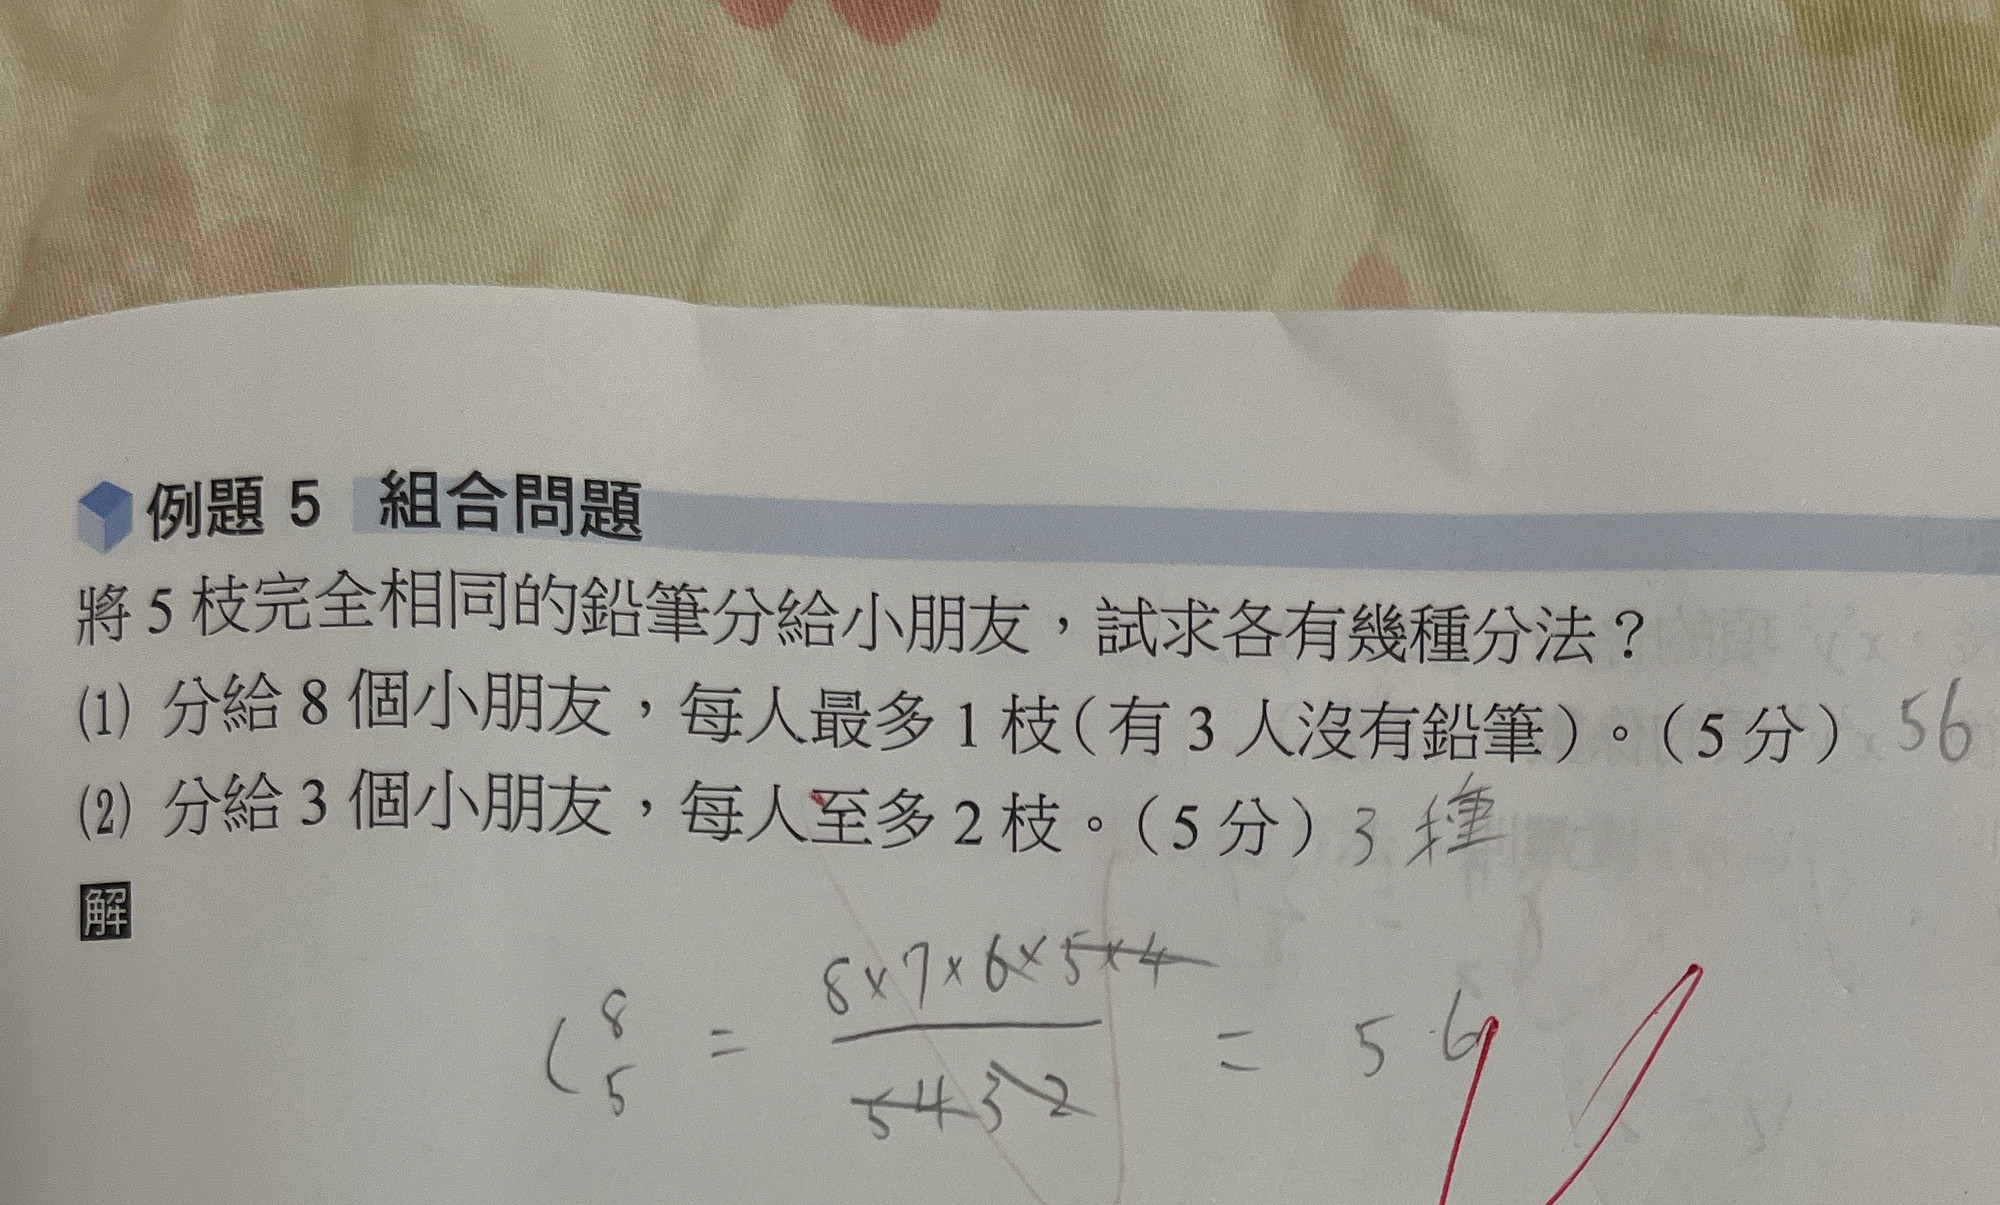 例題 5 組合問題
將 5 枝完全相同的鉛筆分給小朋友，試求各有幾種分法？
(1) 分給 8 個小朋友，每人最多 1 枝(有 3 人沒有鉛筆)。(5 分) 56
(2) 分給 3 個小朋友，每人至多 2 枝。(5 分) 3 種
解
C 8 5 = 8×7×6×5×4 / 5 4 3 2 = 56